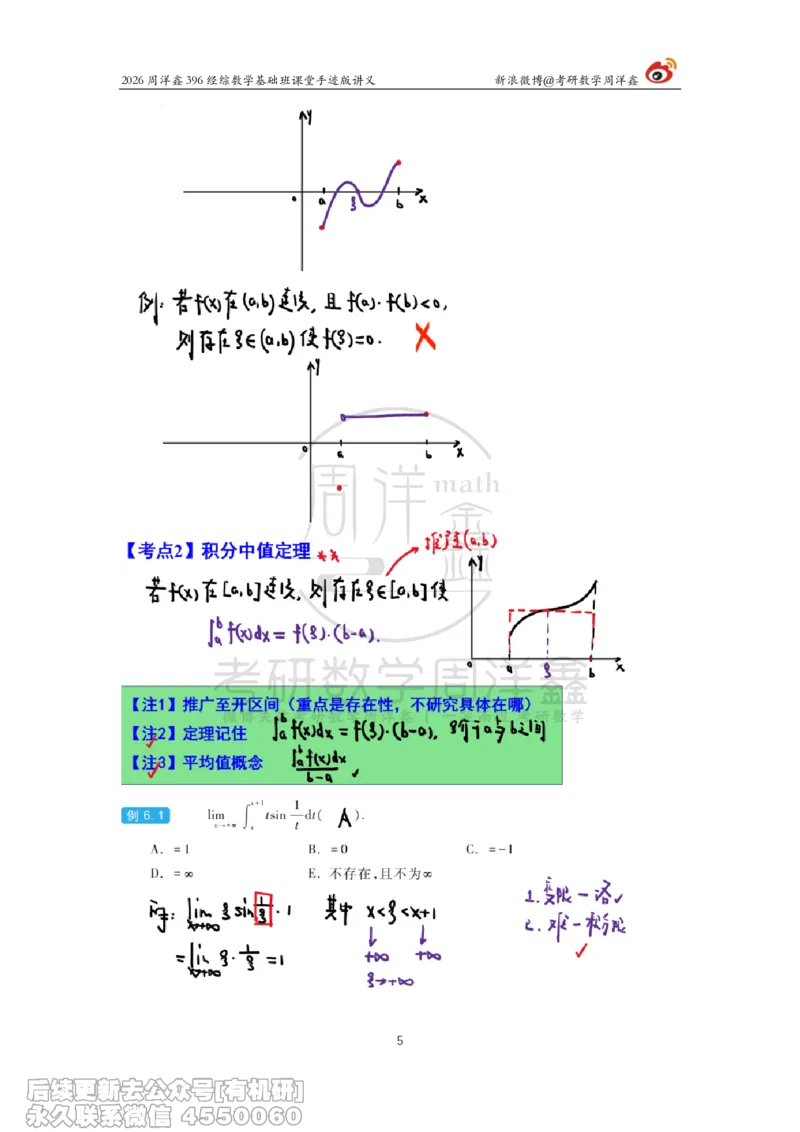 2026 周洋鑫 396 经综数学基础班课堂手迹版讲义 新浪微博@考研数学周洋鑫
y
0 a ξ b x
例: 若f(x)在(a,b)连续, 且 f(a)·f(b)<0,
则存在ξ∈(a,b) 使 f(ξ)=0. ✗
y
0 a b x
周洋鑫 math
【考点2】积分中值定理 ** 推广至(a,b)
若f(x)在[a,b]连续, 则存在ξ∈[a,b]使
∫_a^b f(x)dx = f(ξ)·(b-a).
y
0 a ξ b x
考研数学周洋鑫
【注1】推广至开区间（重点是存在性，不研究具体在哪）
【注2】定理记住 ∫_a^b f(x)dx = f(ξ)·(b-a), ξ介于a与b之间
【注3】平均值概念 ∫_a^b f(x)dx / (b-a) ✓
例 6.1 lim_{x→+∞} ∫_x^{x+1} t sin 1/t dt( A ).
A. =1 B. =0 C. =-1
D. =∞ E. 不存在,且不为∞
1. 变限-洛✓
2. 难-积分✓
原: lim_{x→+∞} ξ sin 1/ξ · 1 其中 x<ξ<x+1
+∞ +∞
= lim_{x→+∞} ξ · 1/ξ = 1
ξ→+∞
5
后续更新去公众号[有机研]
永久联系微信 4550060